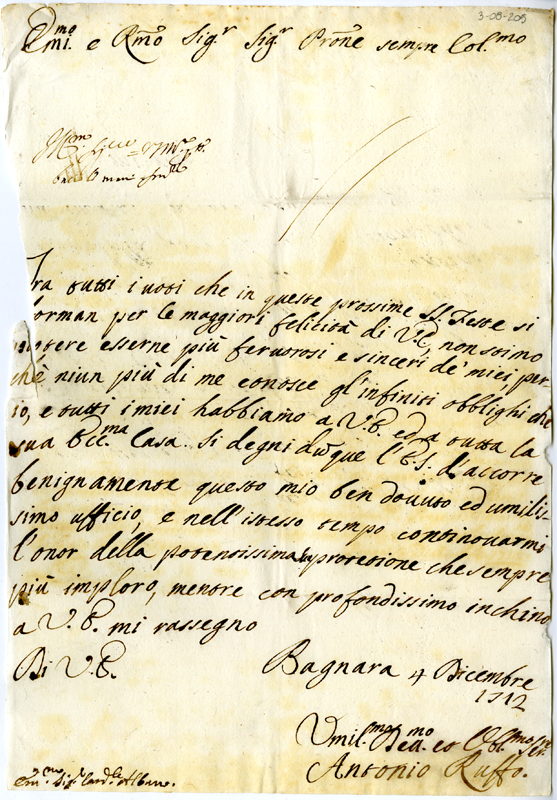 3-05-205
Emi.mo e Rmo Sig.r Sig.r Prone sempre Col.mo
bacio le mani
Tra tutti i voti che in queste prossime SS Feste si
forman per le maggiori felicità di V.E, non stimo
potere esserne più fervorosi e sinceri de' miei, per
chè niun più di me conosce gl'infiniti obblighi che
io, e tutti i miei habbiamo a V.E. ed a tutta la
sua Ecc.ma Casa. Si degni duq̃ue l'E.S. d'accorre
benignamente questo mio ben dovuto ed umilis=
simo ufficio, e nell'istesso tempo continovarmi
l'onor della potentissima sua protezione che sempre
più imploro, mentre con profondissimo inchino
a V.E. mi rassegno
Di V.E.
Bagnara 4 Dicembre
1712
Umil.mo Dev. ed Obl.mo Ser.re
Antonio Ruffo.
Em.mo Sig.r Card.le Albano.